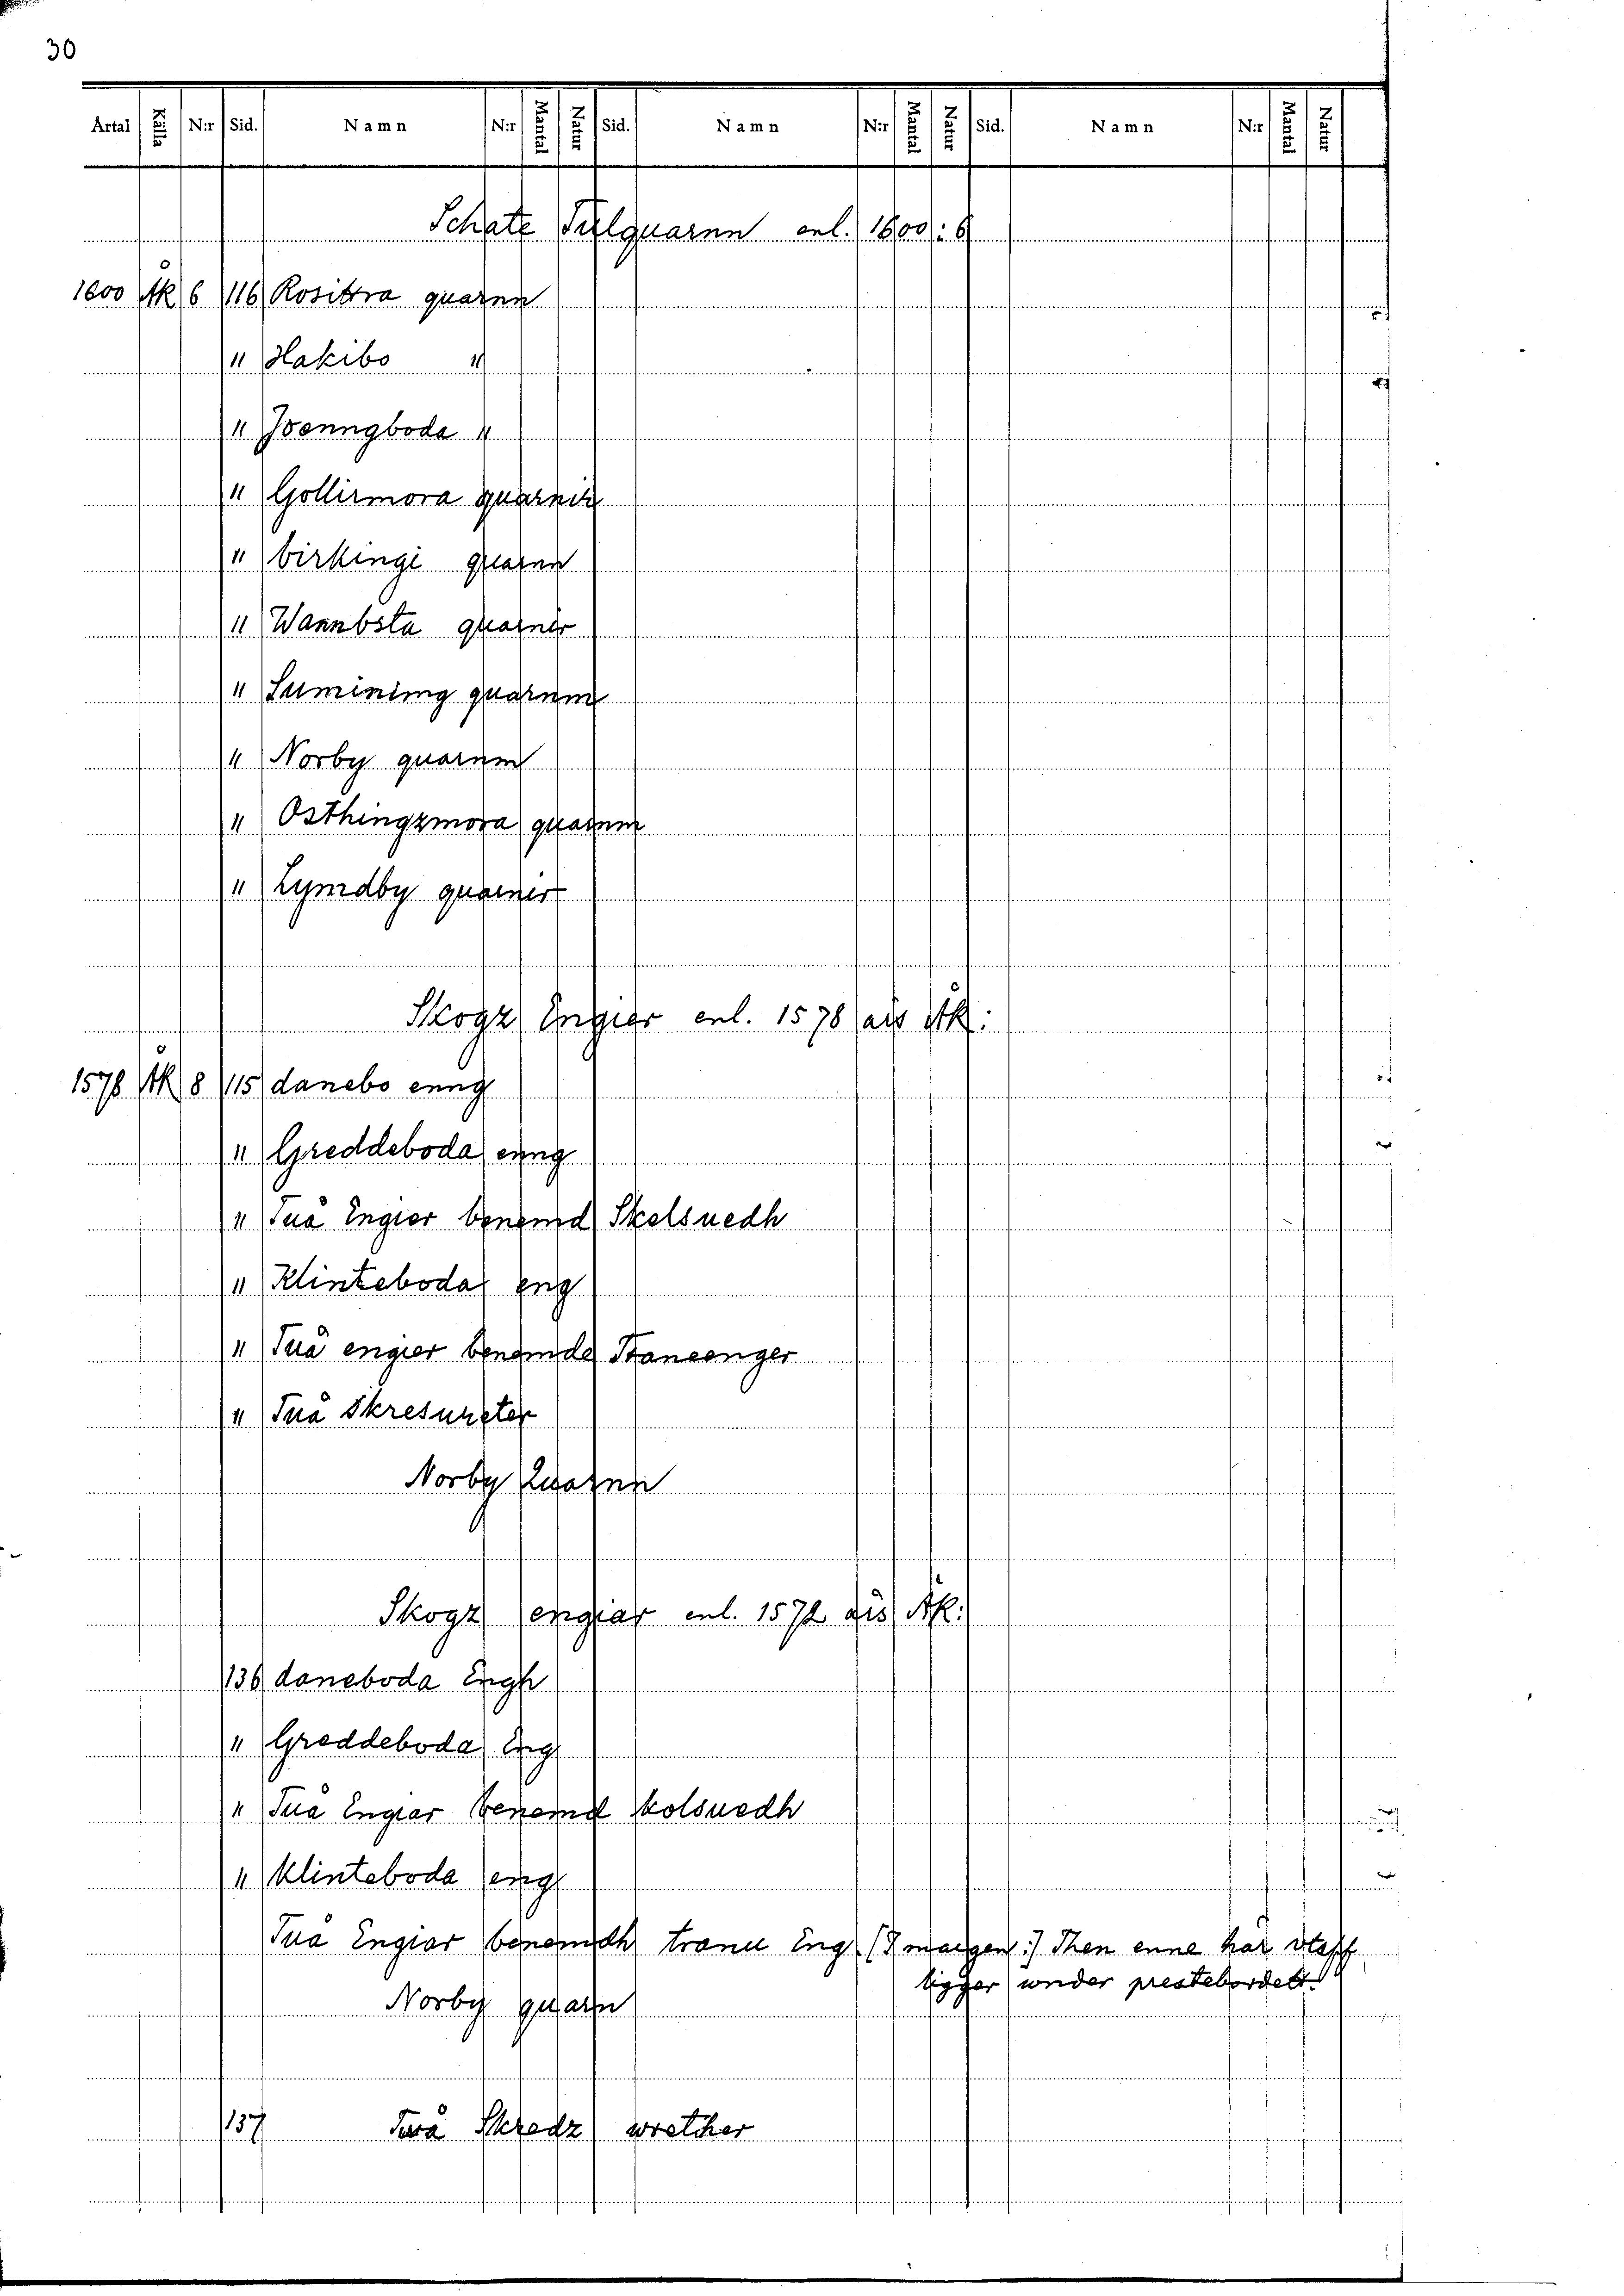 30
Årtal Källa N:r Sid. Namn N:r Mantal Natur Sid. Namn N:r Mantal Natur Sid. Namn N:r Mantal Natur
Schate Tulquarnn enl. 1600:6
1600 ÅK 6 116 Rosittra quarnn
" Hakibo "
" Joenngboda "
" Gollirmora quarnir
" birkingi quarnn
" Wannbsta quarnir
" Lumining quarnn
" Norby quarnn
" Osthingzmora quarnn
" Lyndby quarnir
Skogz Engier enl. 1578 års ÅK:
1578 ÅK 8 115 danebo enng
" Greddeboda enng
" Tuå Engier benemd Skelsuedh
" Klinteboda eng
" Tuå engier benemde Traneenger
" Tuå Skresureter
Norby Quarnn
Skogz engiar enl. 1572 års ÅK:
136 daneboda Engh
" Greddeboda Eng
" Tuå Engiar benemd kolsuedh
" Klinteboda eng
Tuå Engiar benemdh tranu Eng (I margen:) Then enne här vtaff
ligger under prestebordett
Norby quarn
137 Twå Skredz wrether